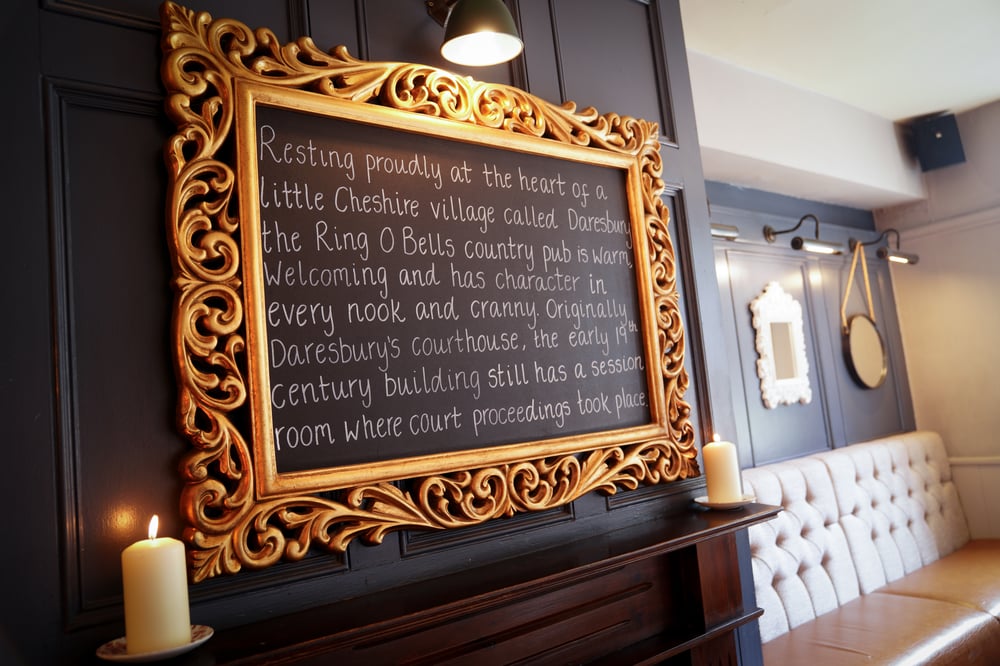 Resting proudly at the heart of a
little Cheshire village called Daresbury
the Ring O Bells country pub is warm,
Welcoming and has character in
every nook and cranny. Originally
Daresbury's courthouse, the early 19th
century building still has a session
room where court proceedings took place.